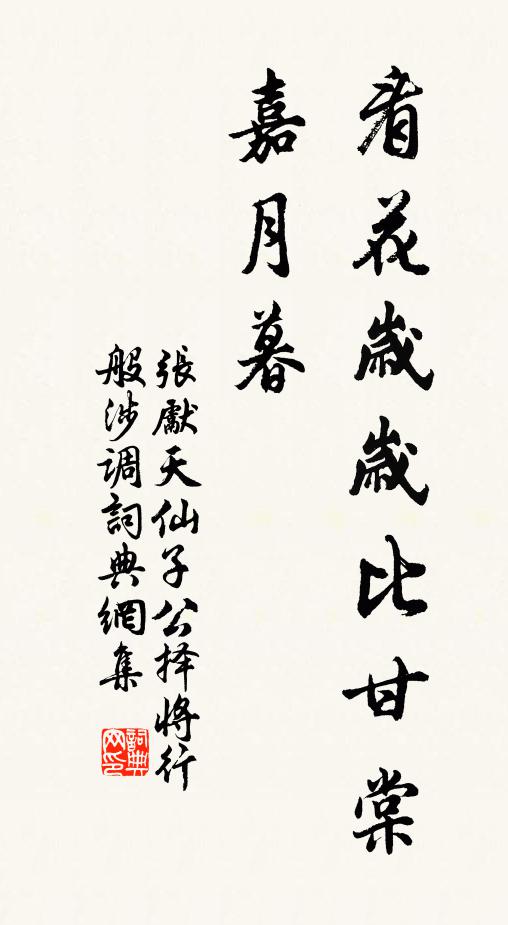 看花歲歲比甘棠
嘉月暮
張獻天仙子公择將行
般涉调詞典網集
詞典
网印